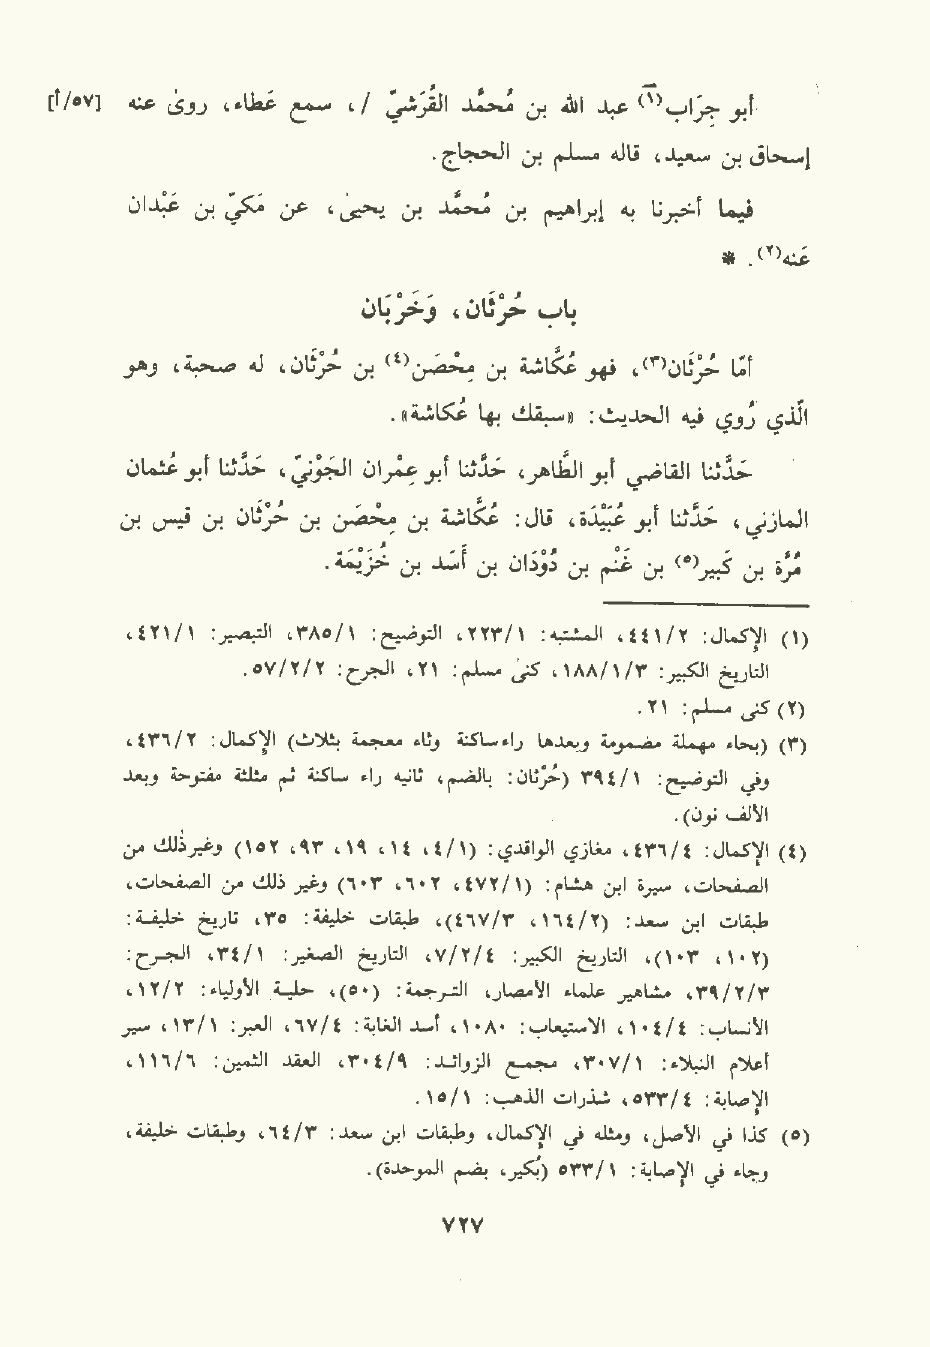 أبو جِرَاب(١) عبد الله بن مُحمَّد القُرَشيّ /، سمع عَطاء، روىٰ عنه [٥٧/أ]
إسحاق بن سعيد، قاله مسلم بن الحجاج.
فيما أخبرنا به إبراهيم بن مُحمَّد بن يحيىٰ، عن مَكيّ بن عَبْدان
عَنه(٢). *
باب حُرْثَان، وَخَرْبَان
أمّا حُرْثَان(٣)، فهو عُكَّاشة بن مِحْصَن(٤) بن حُرْثَان، له صحبة، وهو
الّذي رُوي فيه الحديث: «سبقك بها عُكاشة».
حَدَّثنا القاضي أبو الطَّاهر، حَدَّثنا أبو عِمْران الجَوْنيّ، حَدَّثنا أبو عُثمان
المازني، حَدَّثنا أبو عُبَيْدَة، قال: عُكَّاشة بن مِحْصَن بن حُرْثَان بن قيس بن
مُرَّة بن كَبير(٥) بن غَنْم بن دُوْدَان بن أَسَد بن خُزَيْمَة.
(١) الإكمال: ٤٤١/٢، المشتبه: ٢٢٣/١، التوضيح: ٣٨٥/١، التبصير: ٤٢١/١،
التاريخ الكبير: ١٨٨/١/٣، كنىٰ مسلم: ٢١، الجرح: ٥٧/٢/٢.
(٢) كنى مسلم: ٢١.
(٣) (بحاء مهملة مضمومة وبعدها راءساكنة وثاء معجمة بثلاث) الإكمال: ٤٣٦/٢،
وفي التوضيح: ٣٩٤/١ (حُرْثان: بالضم، ثانيه راء ساكنة ثم مثلثة مفتوحة وبعد
الألف نون).
(٤) الإكمال: ٤٣٦/٤، مغازي الواقدي: (٤/١، ١٤، ١٩، ٩٣، ١٥٢) وغيرذٰلك من
الصفحات، سيرة ابن هشام: (٤٧٢/١، ٦٠٢، ٦٠٣) وغير ذلك من الصفحات،
طبقات ابن سعد: (١٦٤/٢، ٤٦٧/٣)، طبقات خليفة: ٣٥، تاريخ خليفة:
(١٠٢، ١٠٣)، التاريخ الكبير: ٧/٢/٤، التاريخ الصغير: ٣٤/١، الجرح:
٣٩/٢/٣، مشاهير علماء الأمصار، الترجمة: (٥٠)، حلية الأولياء: ١٢/٢،
الأنساب: ١٠٤/٤، الاستيعاب: ١٠٨٠، أسد الغابة: ٦٧/٤، العبر: ١٣/١، سير
أعلام النبلاء: ٣٠٧/١، مجمع الزوائد: ٣٠٤/٩، العقد الثمين: ١١٦/٦،
الإصابة: ٥٣٣/٤، شذرات الذهب: ١٥/١.
(٥) كذا في الأصل، ومثله في الإكمال، وطبقات ابن سعد: ٦٤/٣، وطبقات خليفة،
وجاء في الإصابة: ٥٣٣/١ (بُكير، بضم الموحدة).
٧٢٧